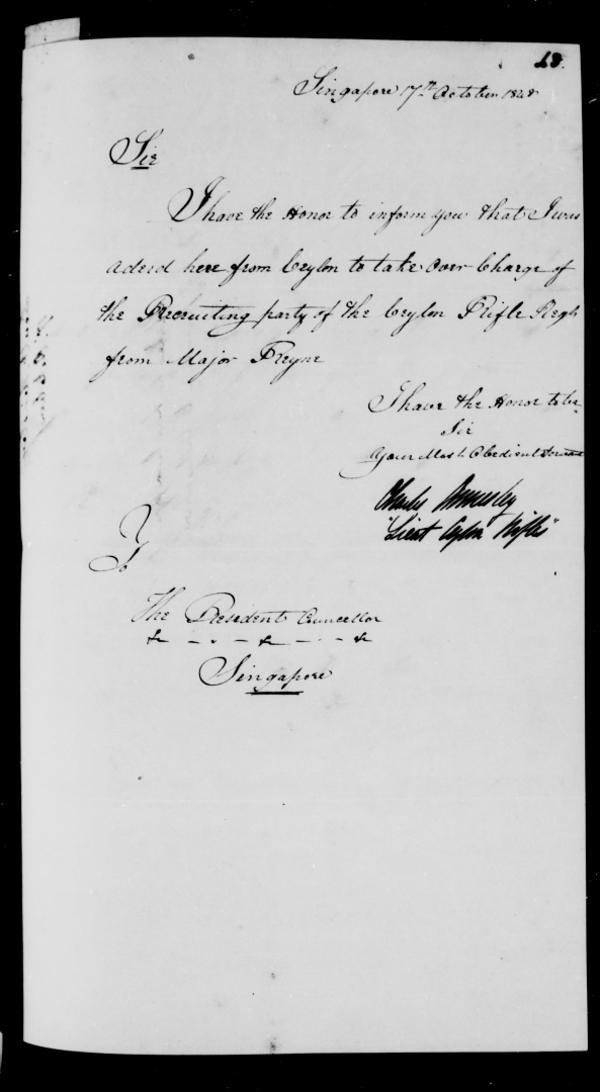 Singapore 17th October 1848
Sir
I have the Honor to inform you that I was
here from Ceylon to take Over Charge of
the Recruiting party of the Ceylon Rifle Regt
from Major Freyne
I have the Honor to be
Sir
Your Most Obedient Servant
Charles
"Lieut Ceylon Rifles"
To
The President Councellor
&c - - - &c - - - &c
Singapore